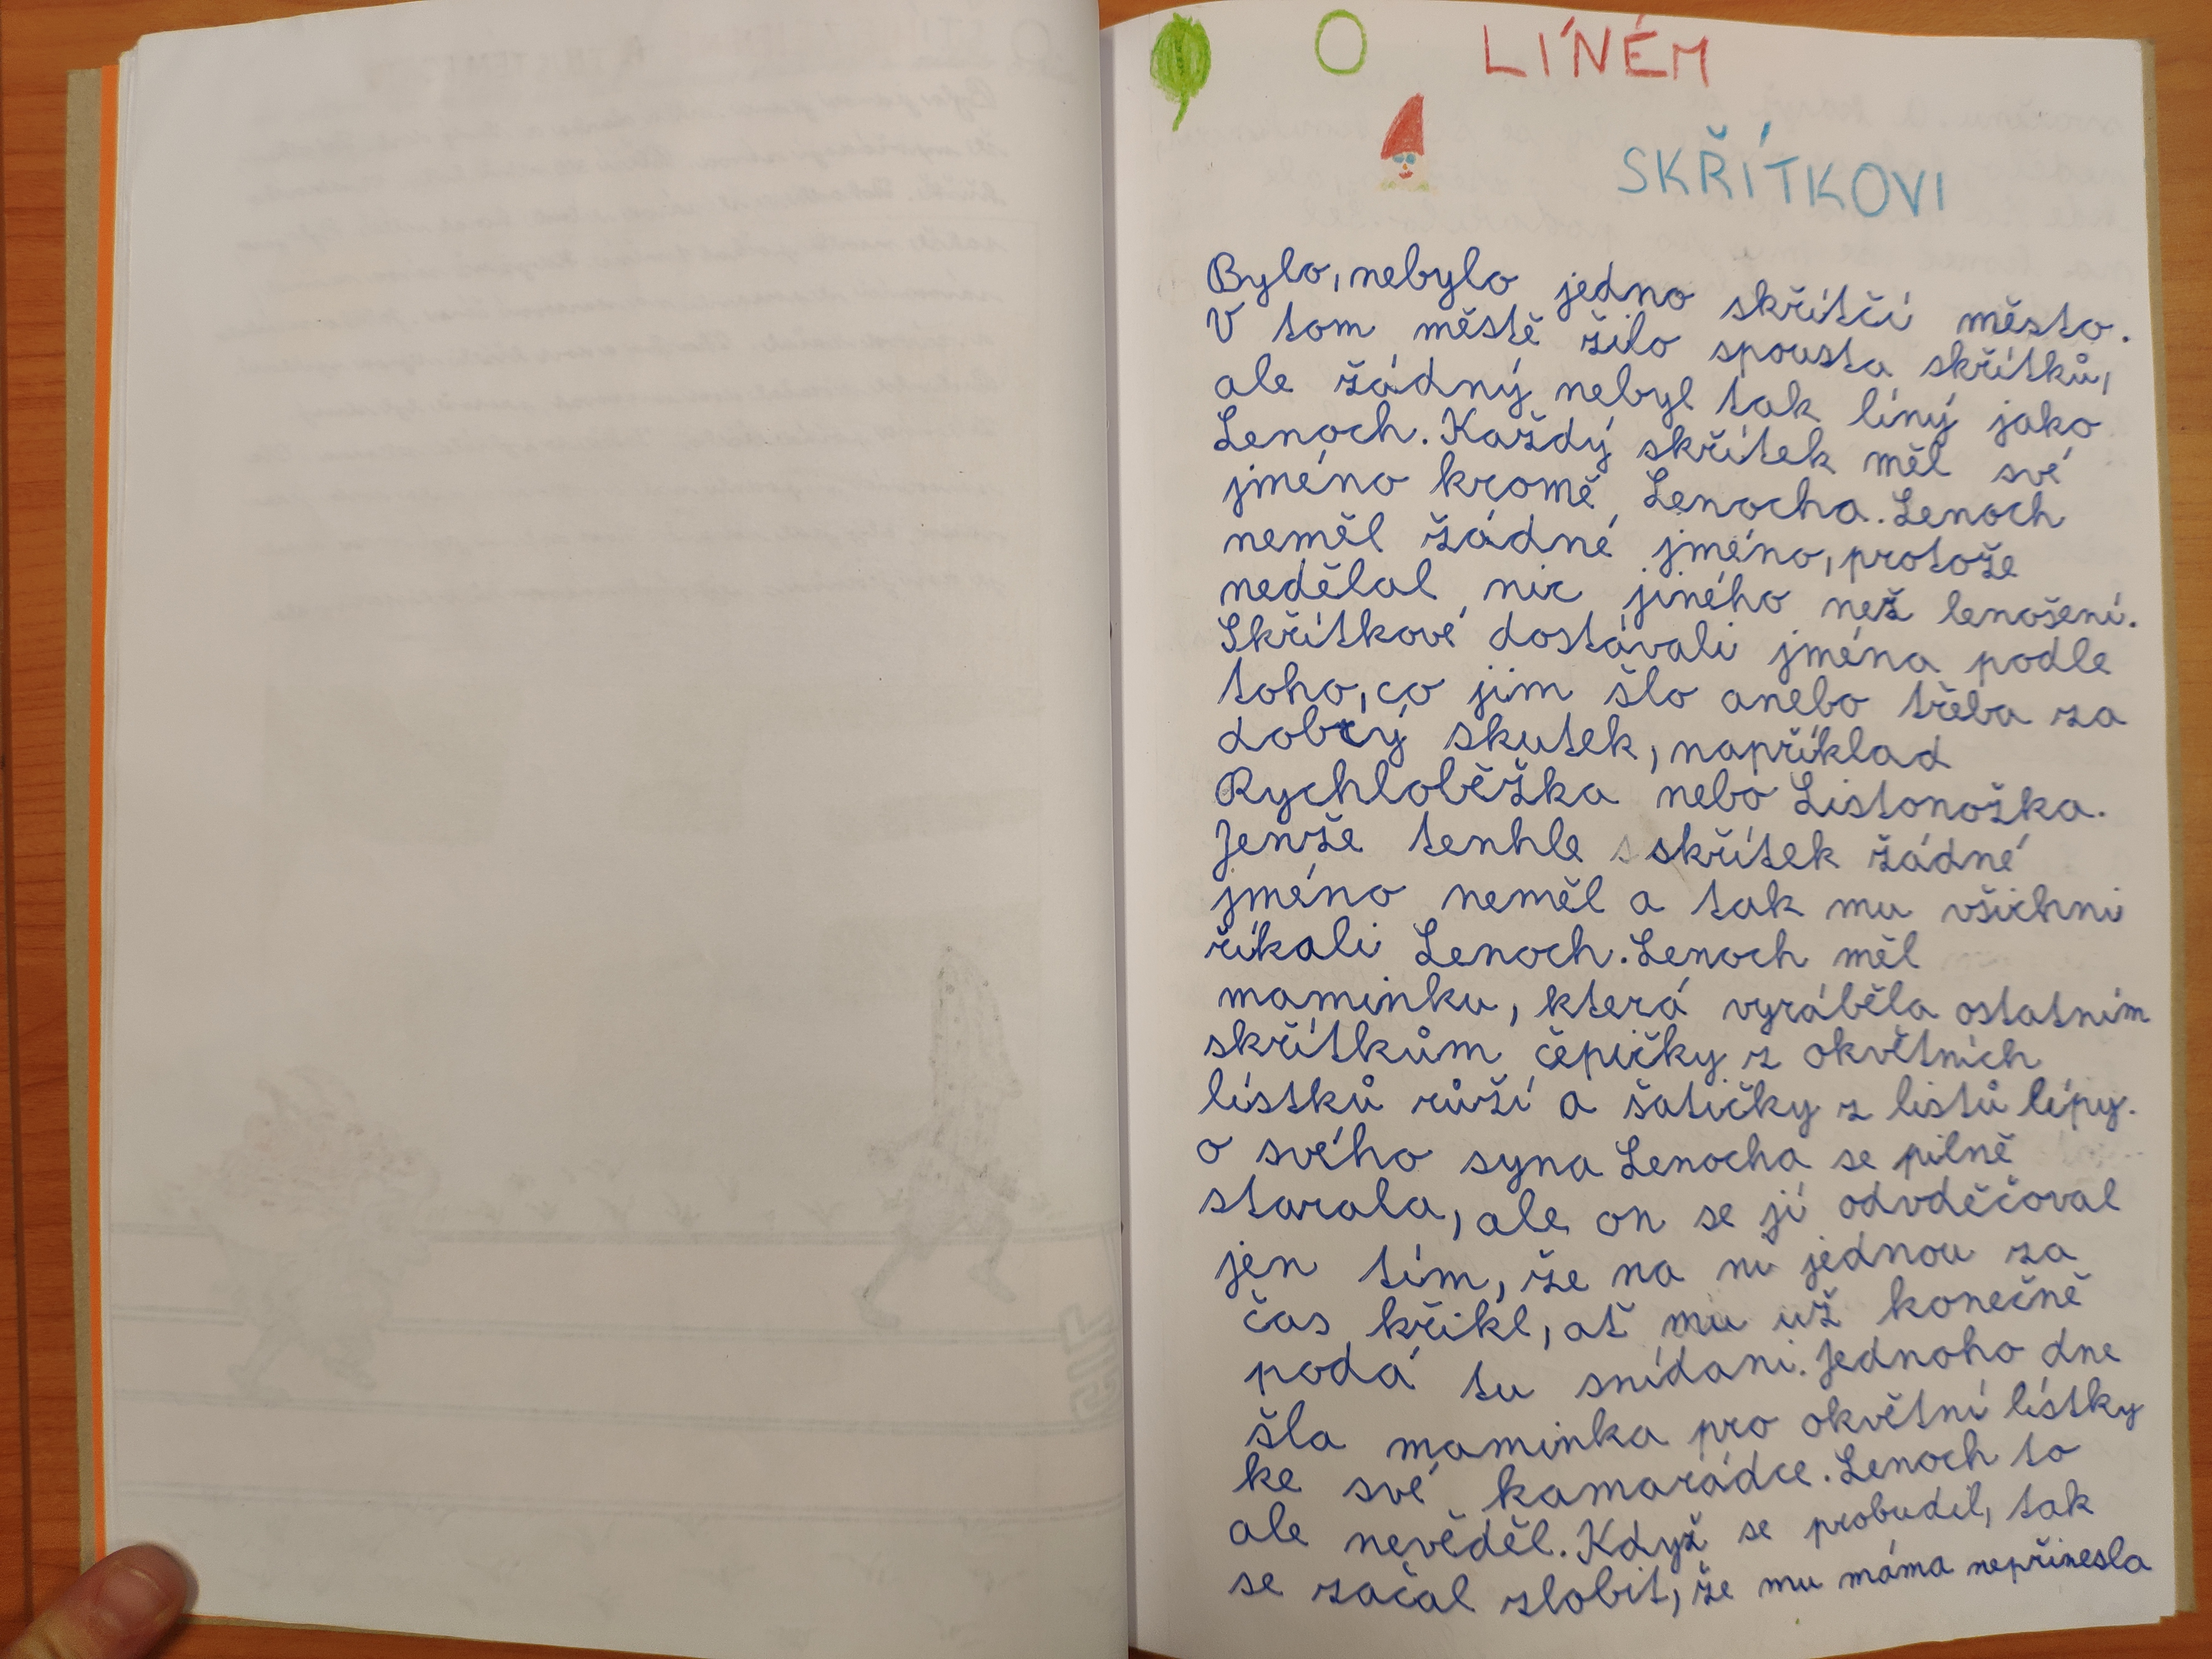 O LÍNÉM
SKŘÍTKOVI
Bylo, nebylo jedno skřítčí město.
V tom městě žilo spousta skřítků,
ale žádný nebyl tak líný jako
Lenoch. Každý skřítek měl své
jméno kromě Lenocha. Lenoch
neměl žádné jméno, protože
nedělal nic jiného než lenošení.
Skřítkové dostávali jména podle
toho, co jim šlo anebo třeba za
dobrý skutek, například
Rychloběžka nebo Listonožka.
Jenže tenhle skřítek žádné
jméno neměl a tak mu všichni
říkali Lenoch. Lenoch měl
maminku, která vyráběla ostatním
skřítkům čepičky z okvětních
lístků růží a šatičky z listů lípy.
O svého syna Lenocha se pilně
starala, ale on se jí odvděčoval
jen tím, že na ni jednou za
čas křikl, ať mu už konečně
podá tu snídani. Jednoho dne
šla maminka pro okvětní lístky
ke své kamarádce. Lenoch to
ale nevěděl. Když se probudil, tak
se začal zlobit, že mu máma nepřinesla